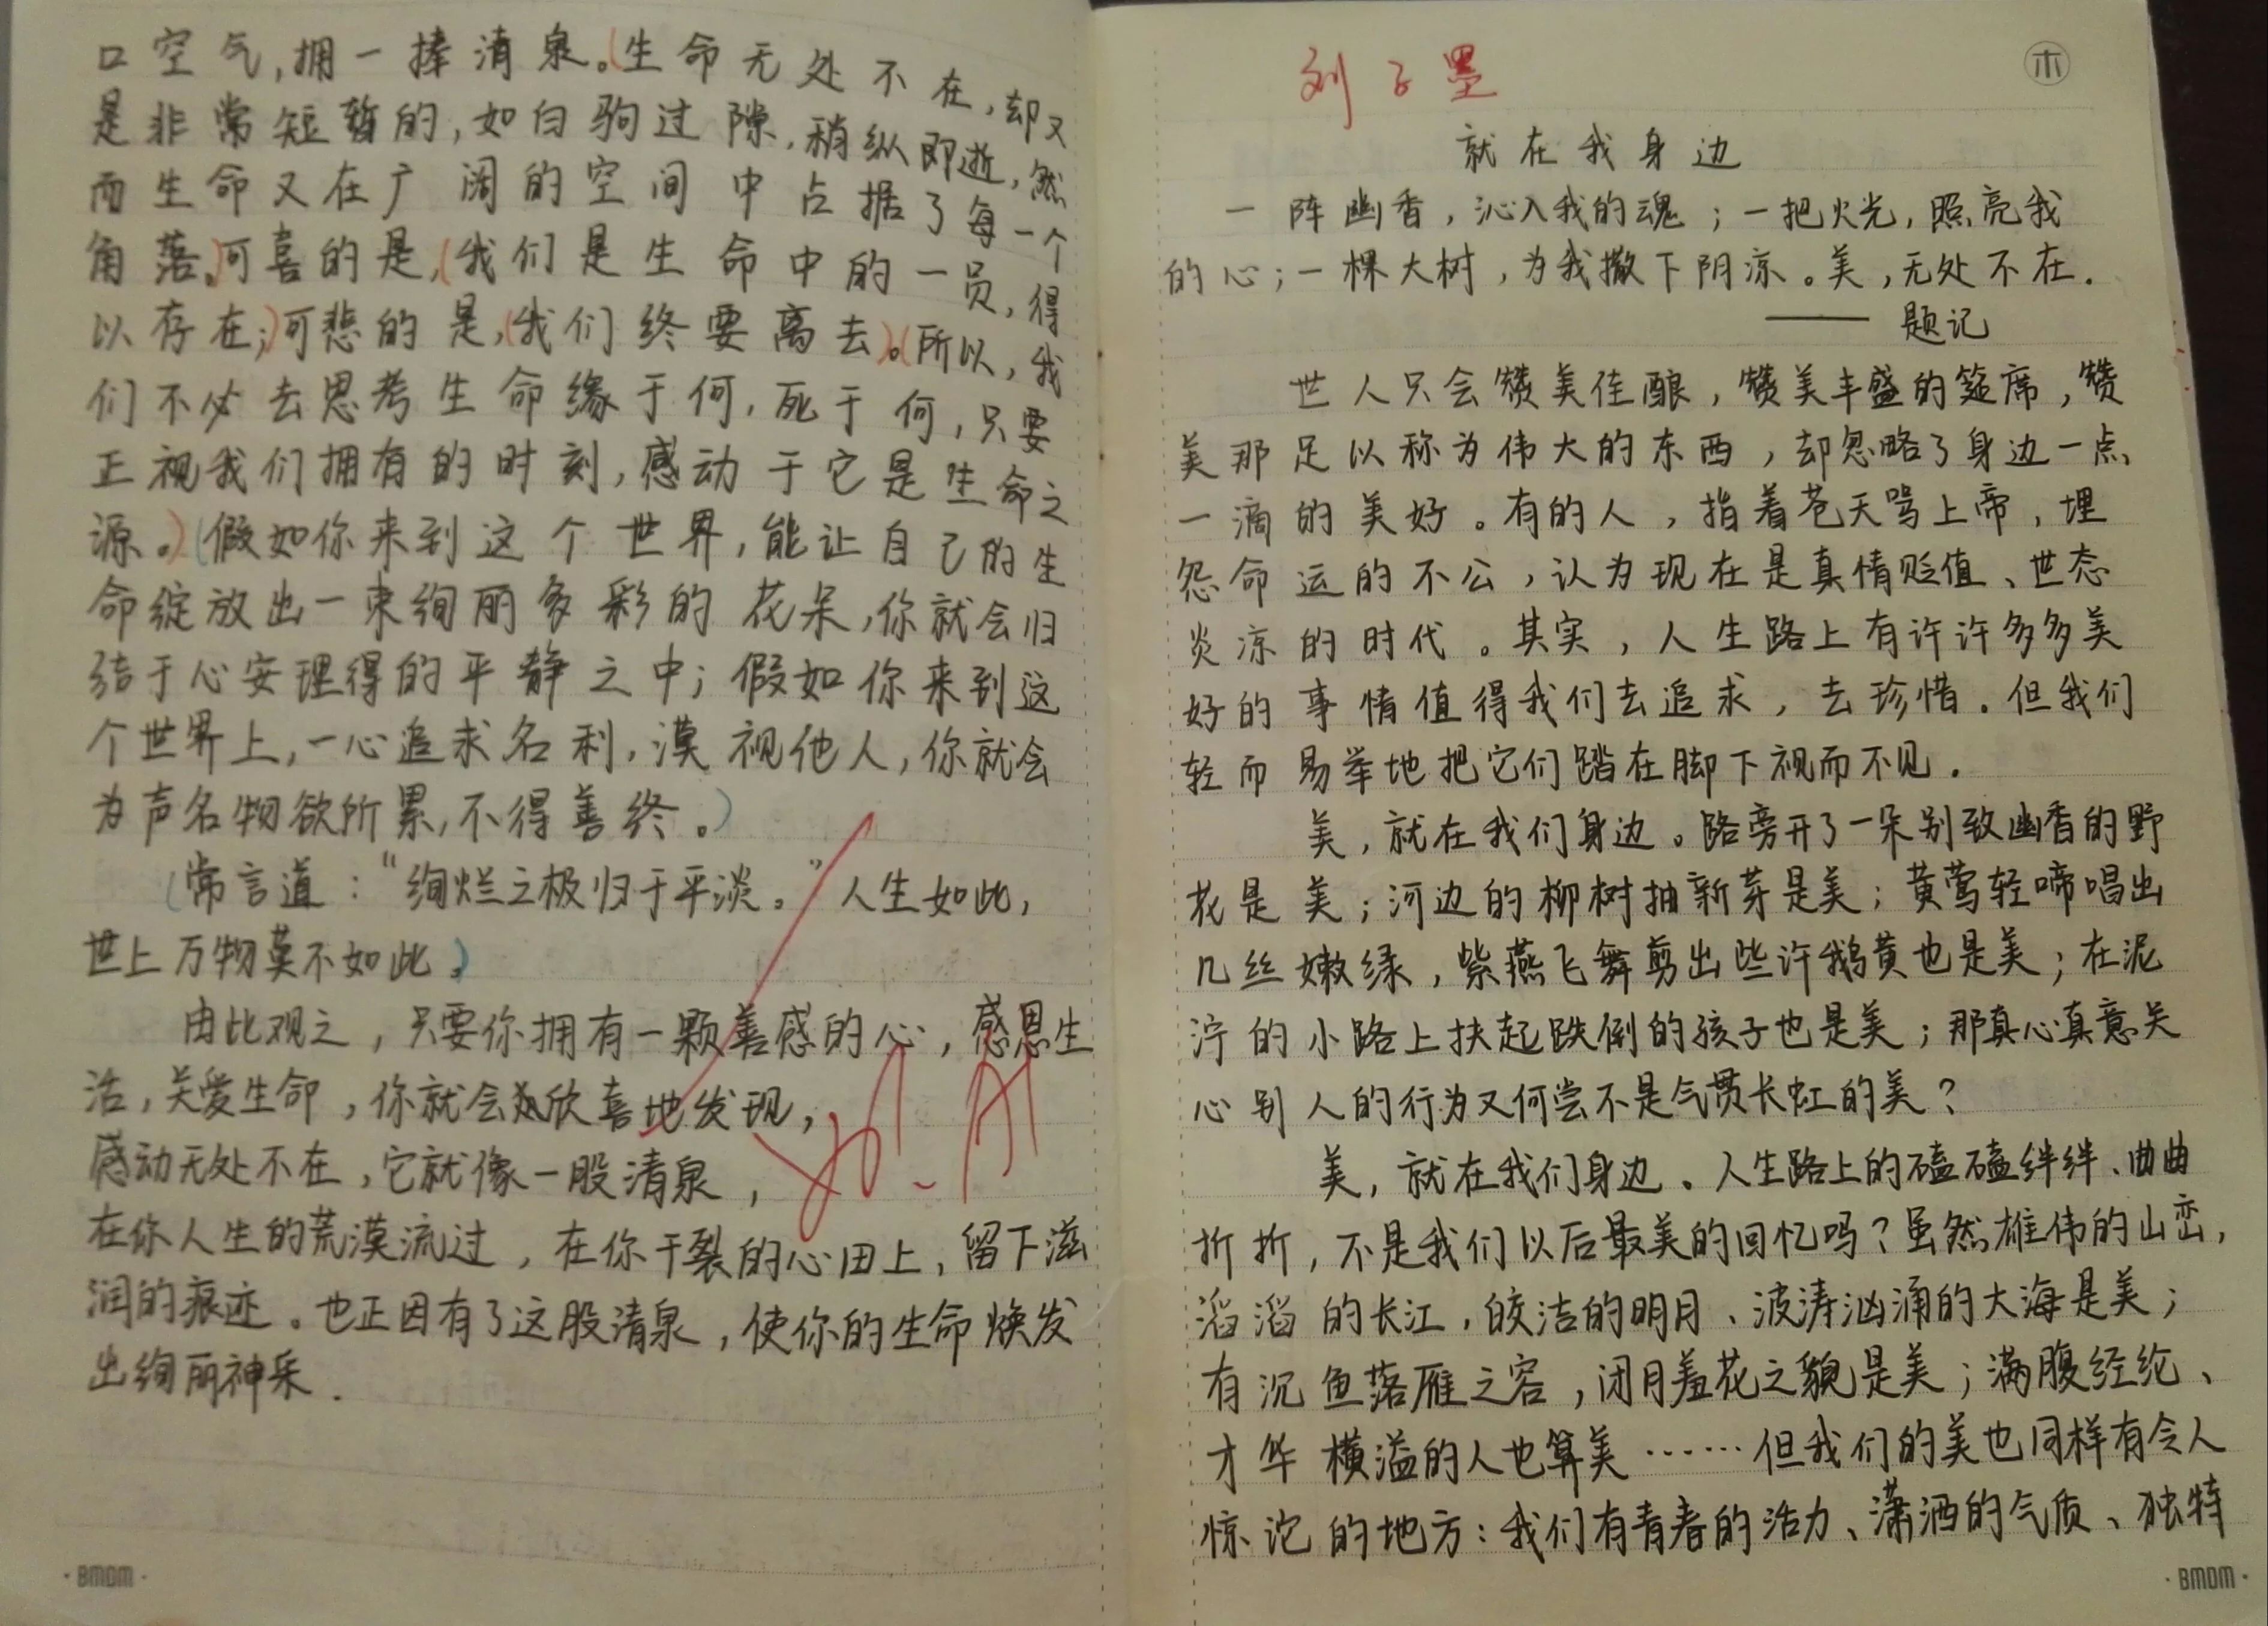 口空气,拥一捧清泉。(生命无处不在,却又
是非常短暂的,如白驹过隙,稍纵即逝,然
而生命又在广阔的空间中占据了每一个
角落。)可喜的是,(我们是生命中的一员,得
以存在;)可悲的是,(我们终要离去)。(所以,我
们不必去思考生命缘于何,死于何,只要
正视我们拥有的时刻,感动于它是生命之
源。)(假如你来到这个世界,能让自己的生
命绽放出一束绚丽多彩的花朵,你就会归
结于心安理得的平静之中;假如你来到这
个世界上,一心追求名利,漠视他人,你就会
为声名物欲所累,不得善终。)
(常言道:“绚烂之极归于平淡。”人生如此,
世上万物莫不如此。)
由此观之,只要你拥有一颗善感的心,感恩生
活,关爱生命,你就会欣喜地发现,
感动无处不在,它就像一股清泉,
在你人生的荒漠流过,在你干裂的心田上,留下滋
润的痕迹。也正因有了这股清泉,使你的生命焕发
出绚丽神采.
·BMDM·
刘子墨
木
就在我身边
一阵幽香,沁入我的魂;一把火光,照亮我
的心;一棵大树,为我撒下阴凉。美,无处不在.
——题记
世人只会赞美佳酿,赞美丰盛的筵席,赞
美那足以称为伟大的东西,却忽略了身边一点
一滴的美好。有的人,指着苍天骂上帝,埋
怨命运的不公,认为现在是真情贬值、世态
炎凉的时代。其实,人生路上有许许多多美
好的事情值得我们去追求,去珍惜.但我们
轻而易举地把它们踏在脚下视而不见.
美,就在我们身边。路旁开了一朵别致幽香的野
花是美;河边的柳树抽新芽是美;黄莺轻啼唱出
几丝嫩绿,紫燕飞舞剪出些许鹅黄也是美;在泥
泞的小路上扶起跌倒的孩子也是美;那真心真意关
心别人的行为又何尝不是气贯长虹的美?
美,就在我们身边.人生路上的磕磕绊绊、曲曲
折折,不是我们以后最美的回忆吗?虽然雄伟的山峦,
滔滔的长江,皎洁的明月、波涛汹涌的大海是美;
有沉鱼落雁之容,闭月羞花之貌是美;满腹经纶、
才华横溢的人也算美……但我们的美也同样有令人
惊诧的地方:我们有青春的活力、潇洒的气质、独特
·BMDM·